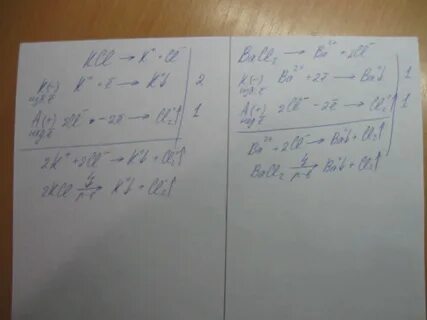 KCl → K⁺ + Cl⁻
K(-) K⁺ + ē → K⁰ 2
A(+) 2Cl⁻ - 2ē → Cl₂⁰↑ 1
2K⁺ + 2Cl⁻ → K⁰ + Cl₂⁰↑
2KCl → K⁰ + Cl₂⁰↑
BaCl₂ → Ba²⁺ + 2Cl⁻
K(-) Ba²⁺ + 2ē → Ba⁰ 1
A(+) 2Cl⁻ - 2ē → Cl₂⁰↑ 1
Ba²⁺ + 2Cl⁻ → Ba⁰ + Cl₂⁰↑
BaCl₂ → Ba⁰ + Cl₂⁰↑